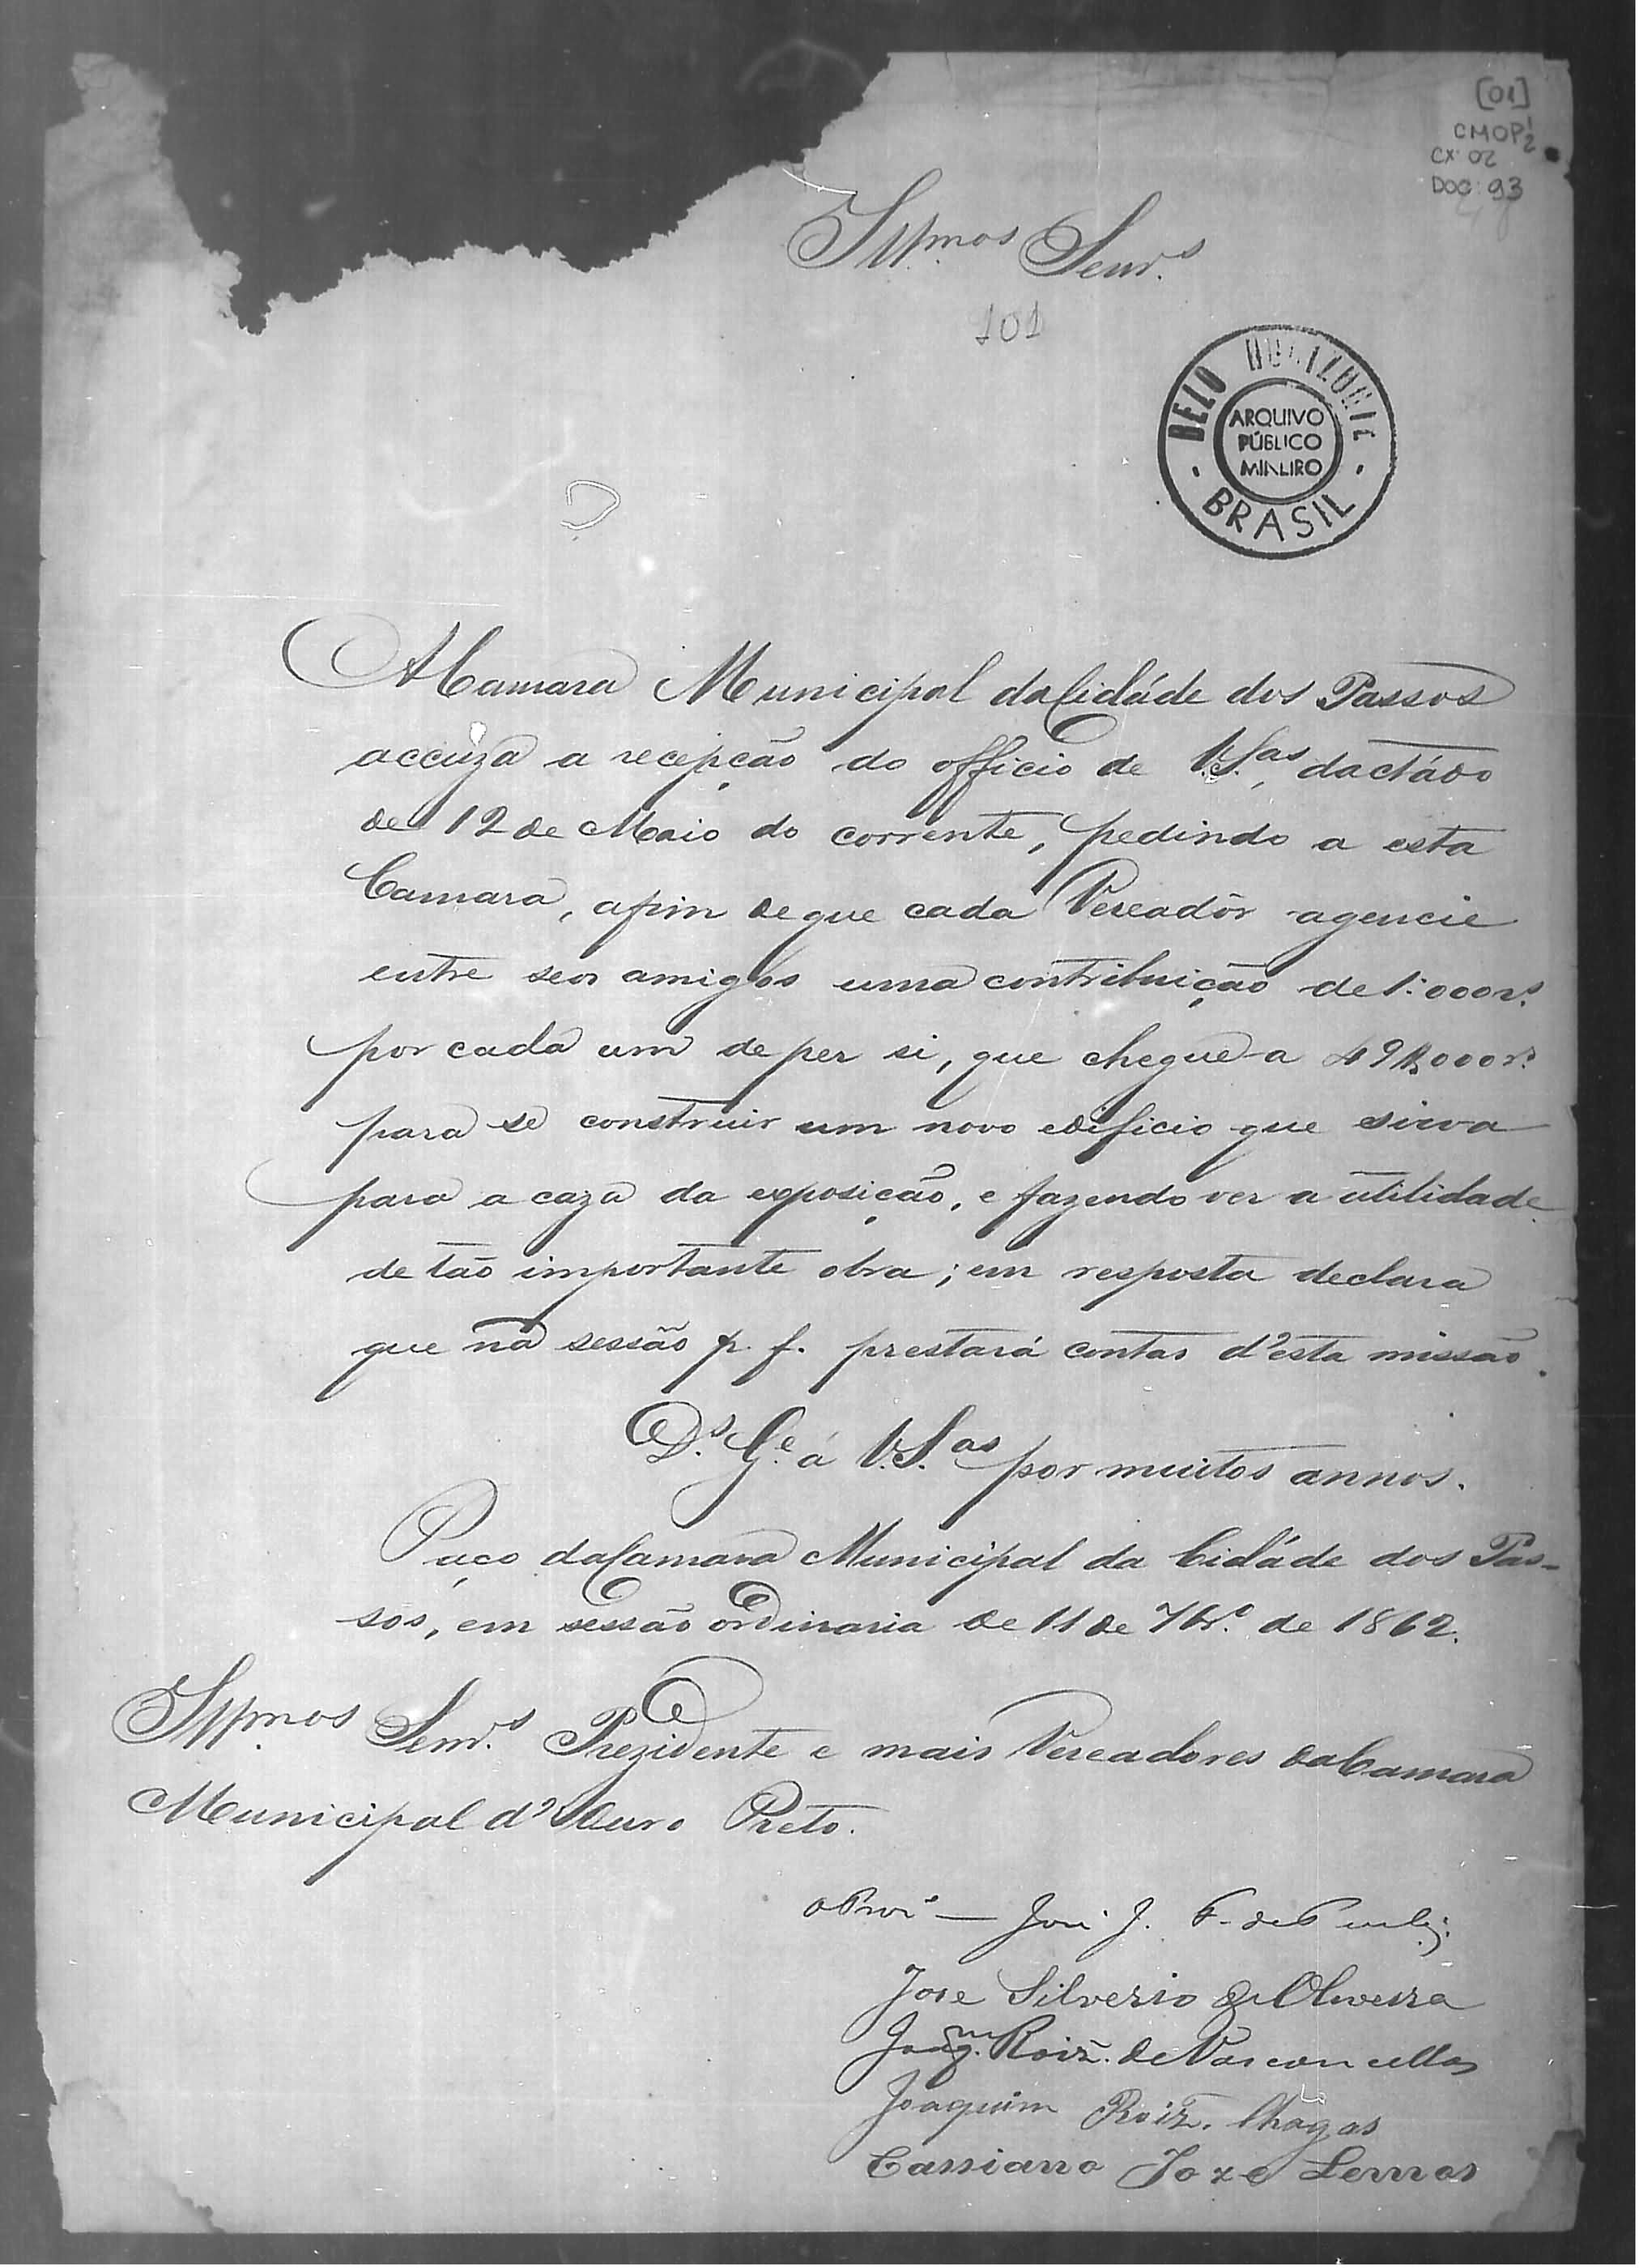 [01]
CMOP 1/2
CX: 02
DOC: 93
Illmos Senrs.
101
BELO HORIZONTE
ARQUIVO
PÚBLICO
MINEIRO
BRASIL
A Camara Municipal da Cidáde dos Passos
accuza a recepção do officio de V.Sas. dactádo
de 12 de Maio do corrente, pedindo a esta
Camara, afim de que cada Vereadôr agencie
entre seos amigos uma contribuição de 1:000rs.
por cada um de per si, que chegue a 49$000rs.
para se construir um novo edificio que sirva
para a caza da exposição, e fazendo ver a utilidade
de tão importante obra; em resposta declara
que na sessão p. f. prestará contas d'esta missão.
Ds. Ge. á V.Sas por muitos annos.
Paço da Camara Municipal da Cidáde dos Pas-
sos, em sessão ordinaria de 11 de 7br.o de 1862.
Illmos Senrs. Prezidente e mais Vereadores da Camara
Municipal d'Ouro Preto.
José J. F. de
Jose Silverio de Oliveira
Joaqm. Roiz. de Vasconcellos
Joaquim Roiz. Chagas
Cassiano Joze Lemos